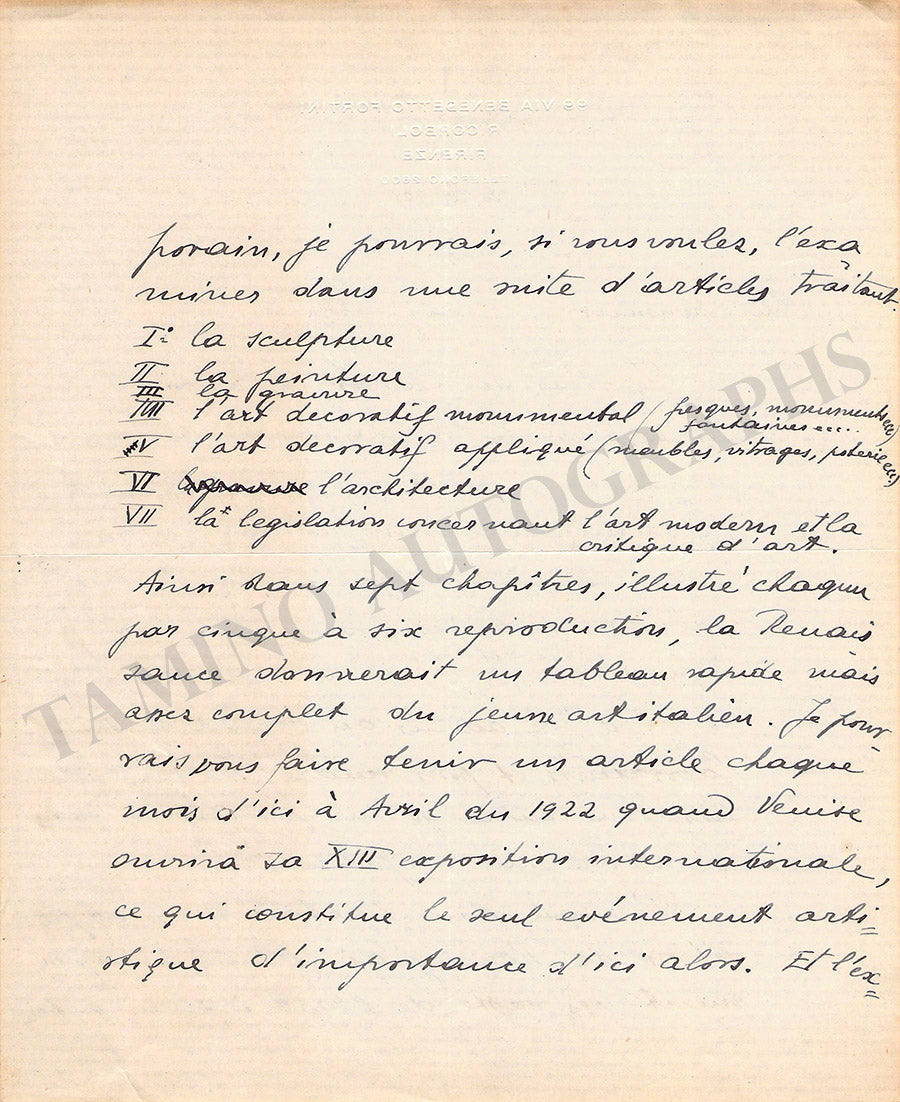 99 VIA BENEDETTO FORTINI
RICORBOLI
FIRENZE
TELEFONO 2600
porain, je pourrais, si vous voulez, l'exa
miner dans une suite d'articles traitant.
I° la sculpture
II la peinture
III la gravure
IIII l'art decoratif monumental (fresques, monuments ecc)
fontaines ecc...
V l'art decoratif appliqué (meubles, vitrages, poterie ecc)
VI l'architecture
VII la legislation concernant l'art modern et la
critique d'art.
Ainsi dans sept chapîtres, illustré chaqun
par cinque à six reproduction, la Renais
sance donnerait un tableau rapide mais
assez complet du jeune art italien. Je pour-
rais vous faire tenir un article chaque
mois d'ici à Avril du 1922 quand Venise
ouvrirà sa XIII exposition internationale,
ce qui constitue le seul evénement arti=
stique d'importance d'ici alors. Et l'ex=
TAMINO AUTOGRAPHS